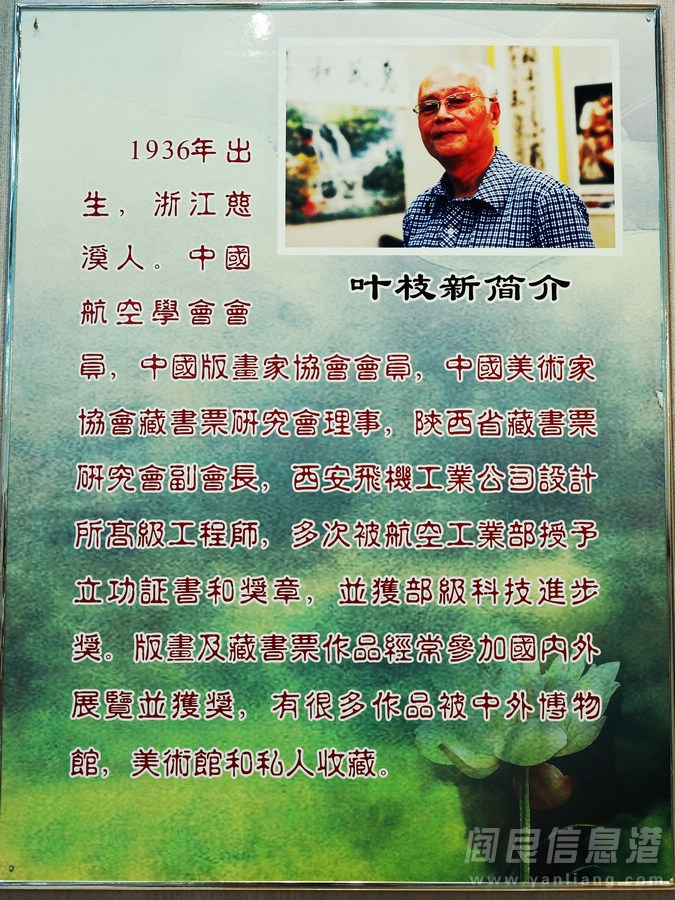 叶枝新简介
1936年出
生，浙江慈
溪人。中國
航空學會會
員，中國版畫家協會會員，中國美術家
協會藏書票研究會理事，陝西省藏書票
研究會副會長，西安飛機工業公司設計
所高級工程師，多次被航空工業部授予
立功証書和獎章，並獲部級科技進步
獎。版畫及藏書票作品經常參加國内外
展覽並獲獎，有很多作品被中外博物
館，美術館和私人收藏。
阎良信息港
www.yanliang.com